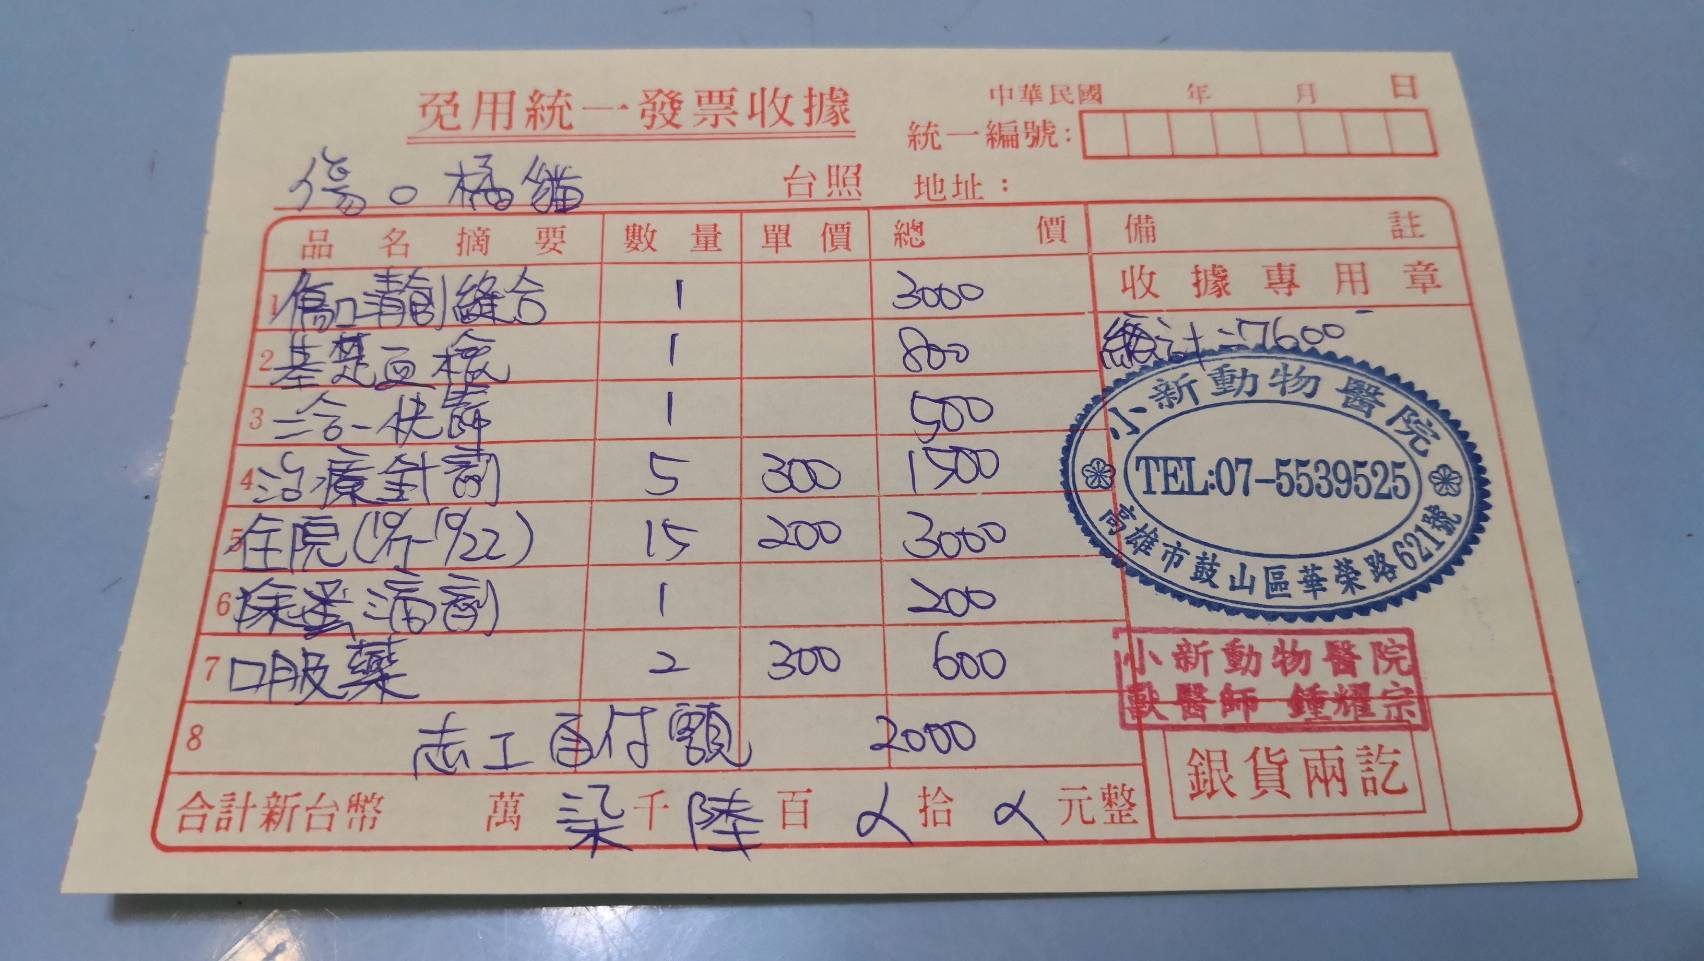 免用統一發票收據
中華民國 年 月 日
統一編號:
傷。橘貓 台照 地址:
品名摘要 數量 單價 總價 備註
收據專用章
1 傷口清創縫合 1 3000
總計=7600
2 基楚血檢 1 800
3 二合一快篩 1 500
4 治療針劑 5 300 1500
5 住院(10/7-10/22) 15 200 3000
6 除蚤滴劑 1 200
7 口服藥 2 300 600
8 志工自付額 2000
合計新台幣 萬 柒 千 陸 百 拾 元整
小新動物醫院
TEL:07-5539525
高雄市鼓山區華榮路621號
小新動物醫院
獸醫師 鍾耀宗
銀貨兩訖